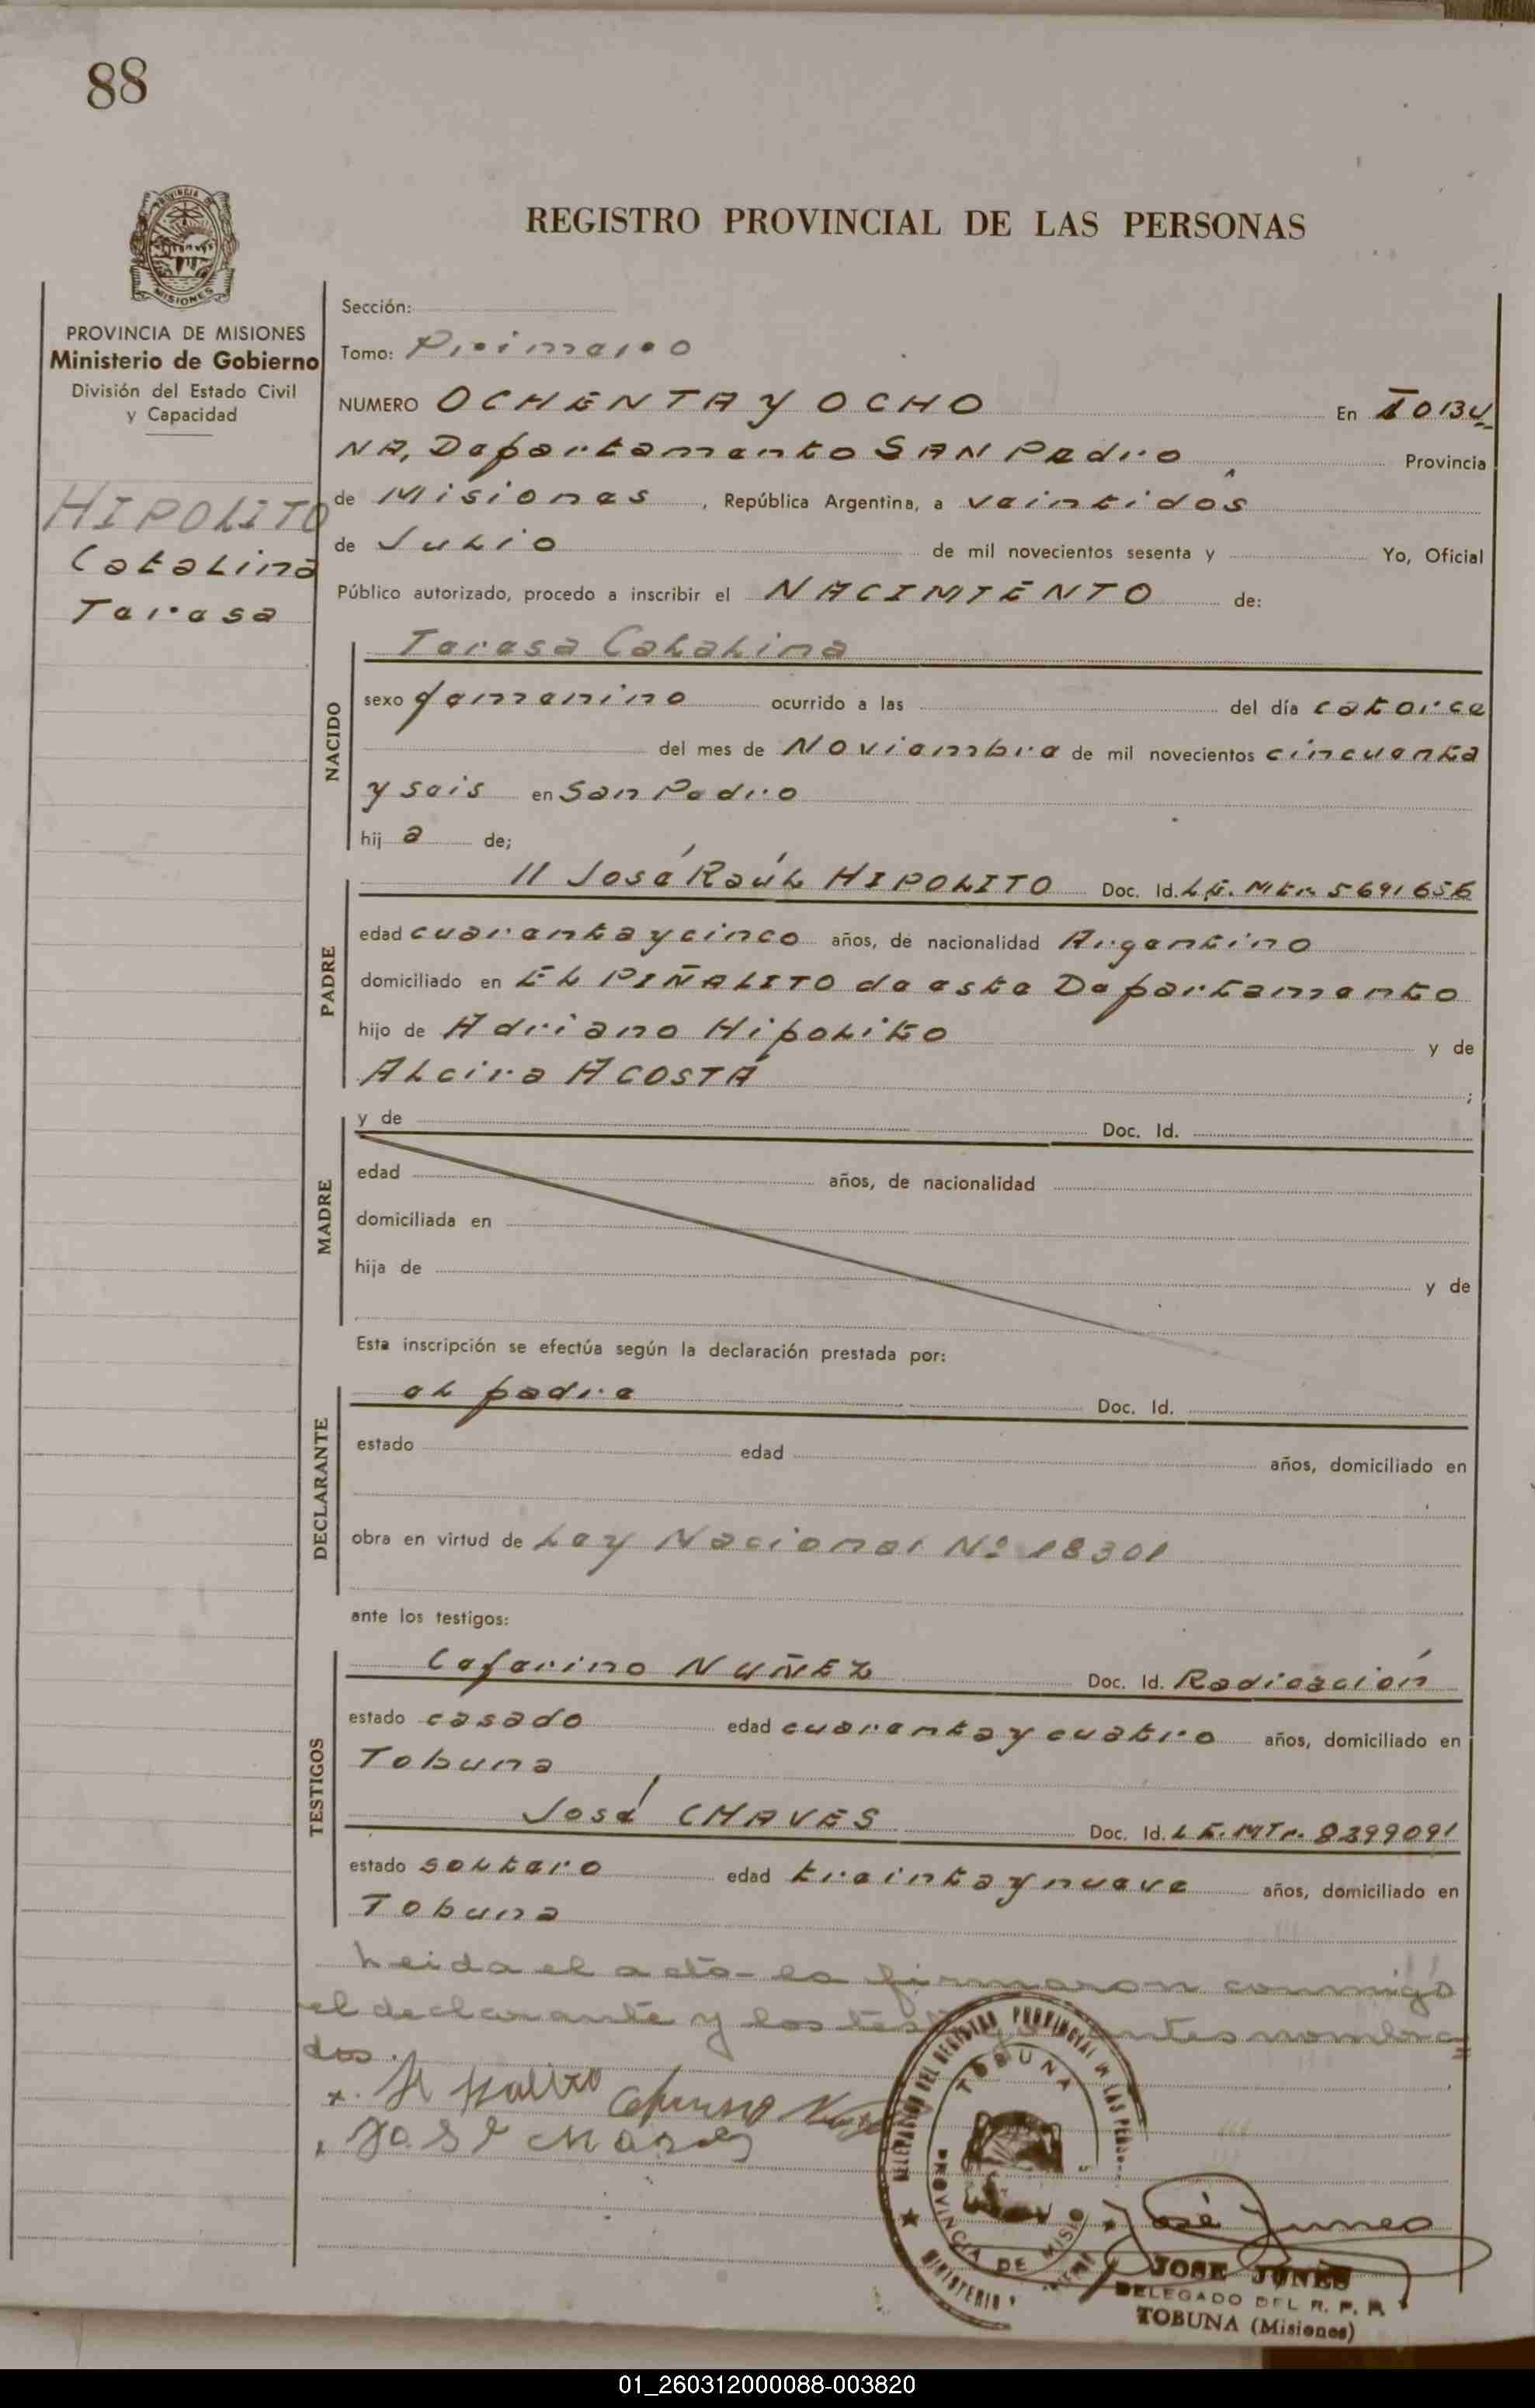 88
PROVINCIA DE
MISIONES
PROVINCIA DE MISIONES
Ministerio de Gobierno
División del Estado Civil
y Capacidad
HIPOLITO
Catalina
Teresa
REGISTRO PROVINCIAL DE LAS PERSONAS
Sección:
Tomo: Primero
NUMERO OCHENTA y OCHO En TOBU
NA, Departamento SAN Pedro Provincia
de Misiones, República Argentina, a veintidos
de Julio de mil novecientos sesenta y Yo, Oficial
Público autorizado, procedo a inscribir el NACIMIENTO de:
NACIDO
Teresa Catalina
sexo femenino ocurrido a las del día catorce
del mes de Noviembre de mil novecientos cincuenta
y seis en San Pedro
hij a de;
PADRE
José Raúl HIPOLITO Doc. Id. L.E. Mtr. 5691656
edad cuarenta y cinco años, de nacionalidad Argentino
domiciliado en EL PIÑALITO de este Departamento
hijo de Adriano Hipolito y de
Alcira ACOSTA ;
MADRE
y de Doc. Id.
edad años, de nacionalidad
domiciliada en
hija de y de
Esta inscripción se efectúa según la declaración prestada por:
DECLARANTE
el padre Doc. Id.
estado edad años, domiciliado en
obra en virtud de Ley Nacional Nº 18301
ante los testigos:
TESTIGOS
Ceferino NUÑEZ Doc. Id. Radicación
estado casado edad cuarenta y cuatro años, domiciliado en
Tobuna
José CHAVES Doc. Id. L.E. MTr. 8299091
estado soltero edad treinta y nueve años, domiciliado en
Tobuna
Leida el acta la firmaron conmigo
el declarante y los testigos antes nombra
dos.
DELEGACION DEL REGISTRO PROVINCIAL DE LAS PERSO
TOBUNA
PROVINCIA DE MISIO
MINISTERIO
José Junes
JOSE JUNES
DELEGADO DEL R. P. P.
TOBUNA (Misiones)
01_260312000088-003820